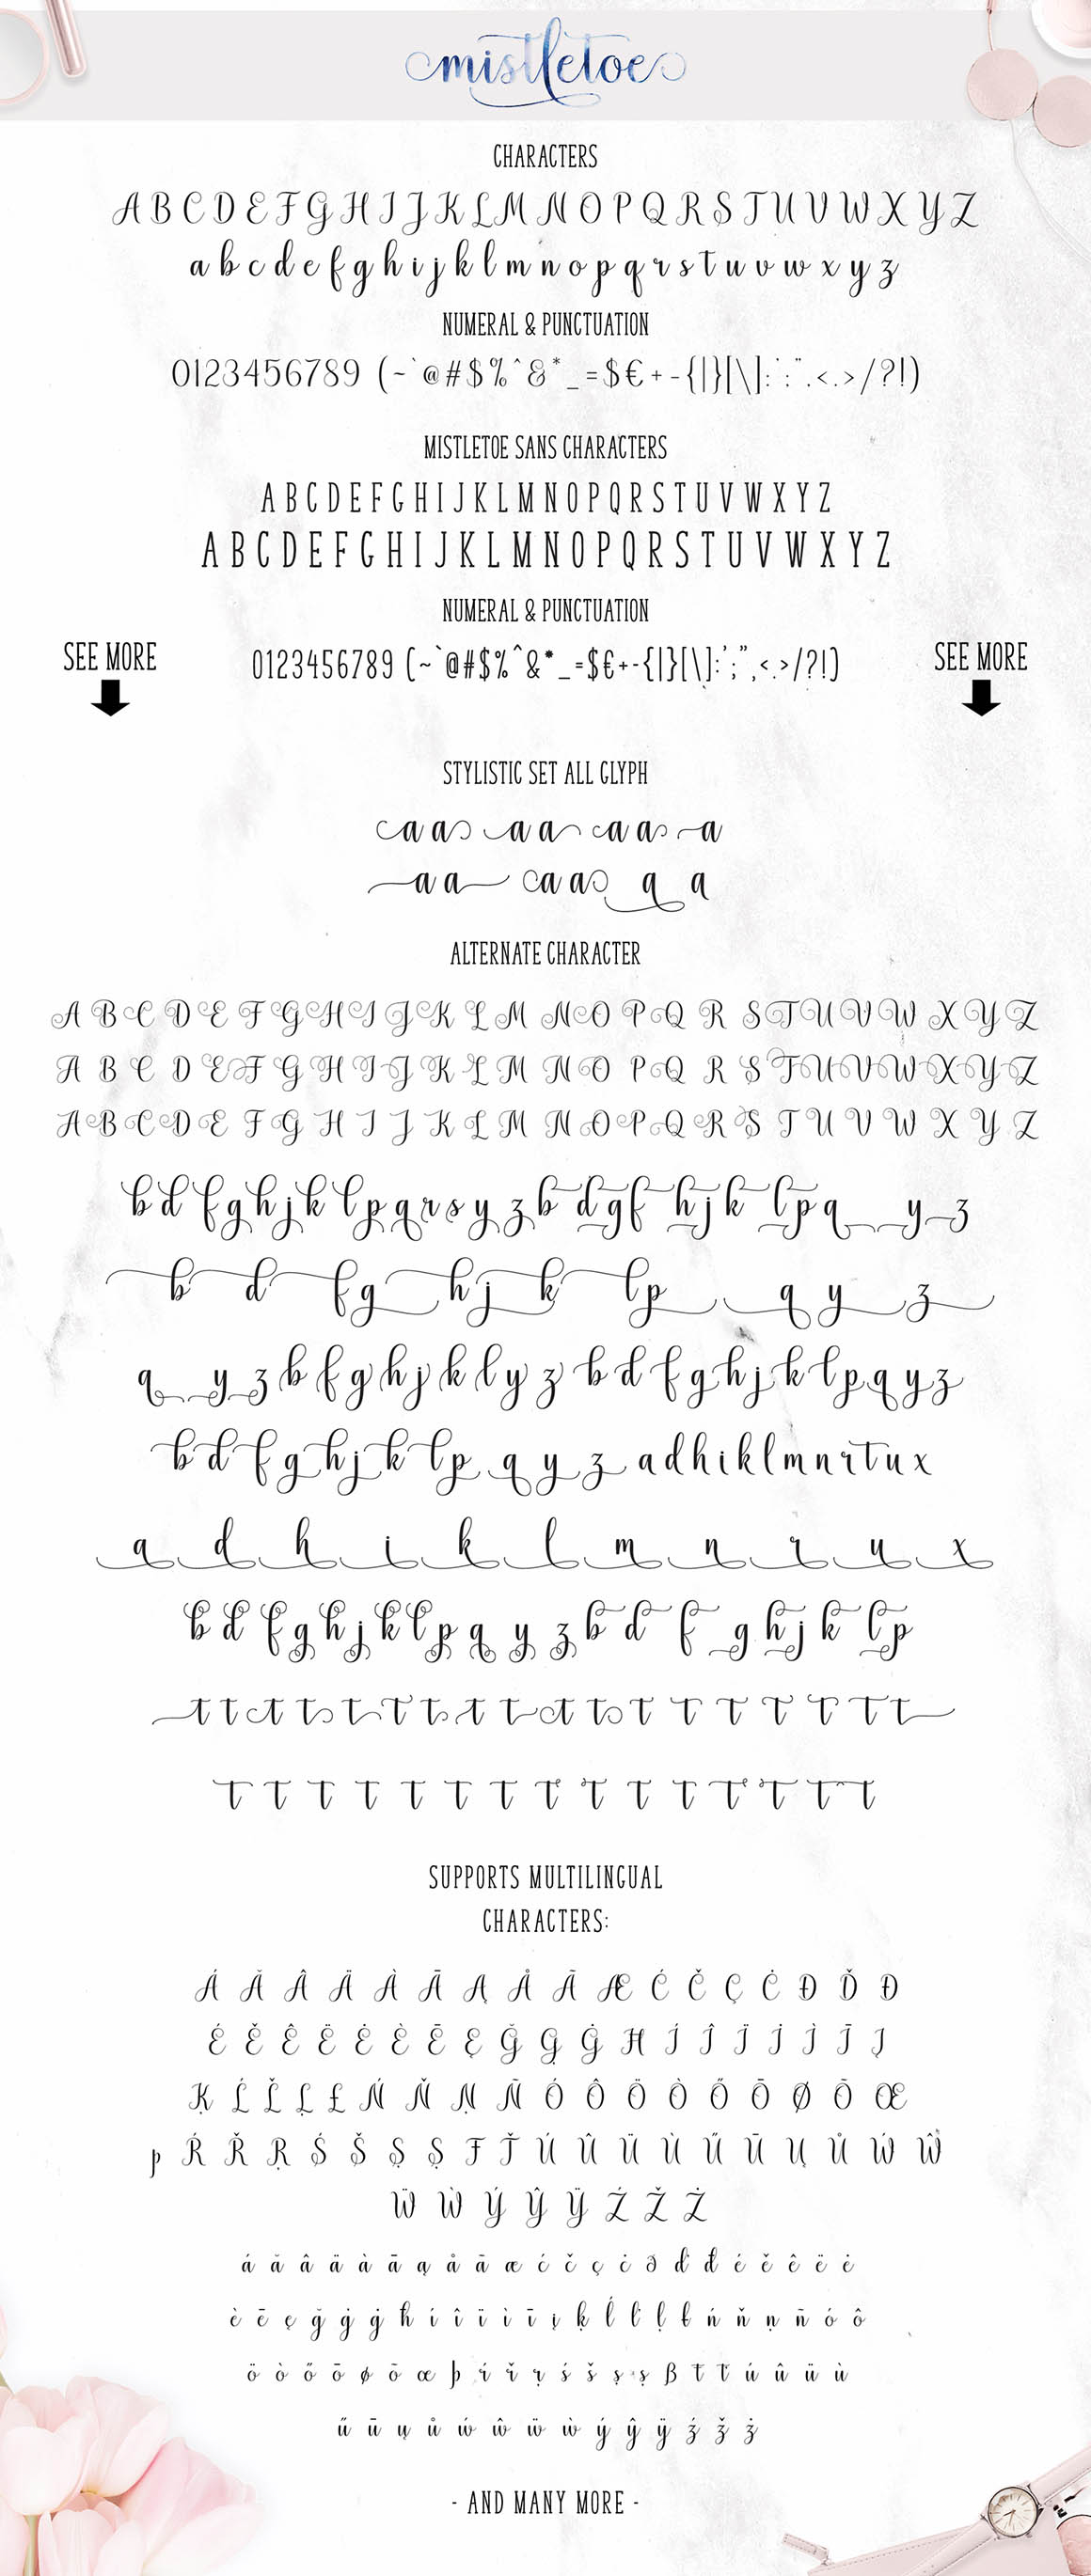 mistletoe
CHARACTERS
A B C D E F G H I J K L M N O P Q R S T U V W X Y Z
a b c d e f g h i j k l m n o p q r s t u v w x y z
NUMERAL & PUNCTUATION
0123456789 (~`@#$%^&*_=$€+-{|}[\]:';",<.>/?!)
MISTLETOE SANS CHARACTERS
A B C D E F G H I J K L M N O P Q R S T U V W X Y Z
A B C D E F G H I J K L M N O P Q R S T U V W X Y Z
NUMERAL & PUNCTUATION
SEE MORE
0123456789 (~`@#$%^&*_=$€+-{|}[\]:';",<.>/?!)
SEE MORE
STYLISTIC SET ALL GLYPH
a a a a a a a
a a a a a a
ALTERNATE CHARACTER
A B C D E F G H I J K L M N O P Q R S T U V W X Y Z
A B C D E F G H I J K L M N O P Q R S T U V W X Y Z
A B C D E F G H I J K L M N O P Q R S T U V W X Y Z
b d f g h j k l p q r s y z b d g f h j k l p q y z
b d f g h j k l p q y z
q y z b f g h j k l y z b d f g h j k l p q y z
b d f g h j k l p q y z a d h i k l m n r t u x
a d h i k l m n r u x
b d f g h j k l p q y z b d f g h j k l p
t t t t t t t t t t t t t t t t t t
t t t t t t t t t t t t t t t
SUPPORTS MULTILINGUAL
CHARACTERS:
Á Ă Â Ä À Ā Ą Å Ã Æ Ć Č Ç Ċ Đ Ď Đ
É Ě Ê Ë Ė È Ē Ę Ğ Ģ Ġ Ħ Í Î Ï İ Ì Ī Į
Ķ Ĺ Ľ Ļ Ł Ń Ň Ņ Ñ Ó Ô Ö Ò Ő Ō Ø Õ Œ
þ Ŕ Ř Ŗ Ś Š Ş Ș Ŧ Ť Ú Û Ü Ù Ű Ū Ų Ů Ẃ Ŵ
Ẅ Ẁ Ý Ŷ Ÿ Ź Ž Ż
á ă â ä à ā ą å ã æ ć č ç ċ ð ď đ é ě ê ë ė
è ē ę ğ ģ ġ ħ í î ï ì ī į ķ ĺ ľ ļ ł ń ň ņ ñ ó ô
ö ò ő ō ø õ œ þ ŕ ř ŗ ś š ş ș ß ŧ ť ú û ü ù
ű ū ų ů ẃ ŵ ẅ ẁ ý ŷ ÿ ź ž ż
- AND MANY MORE -